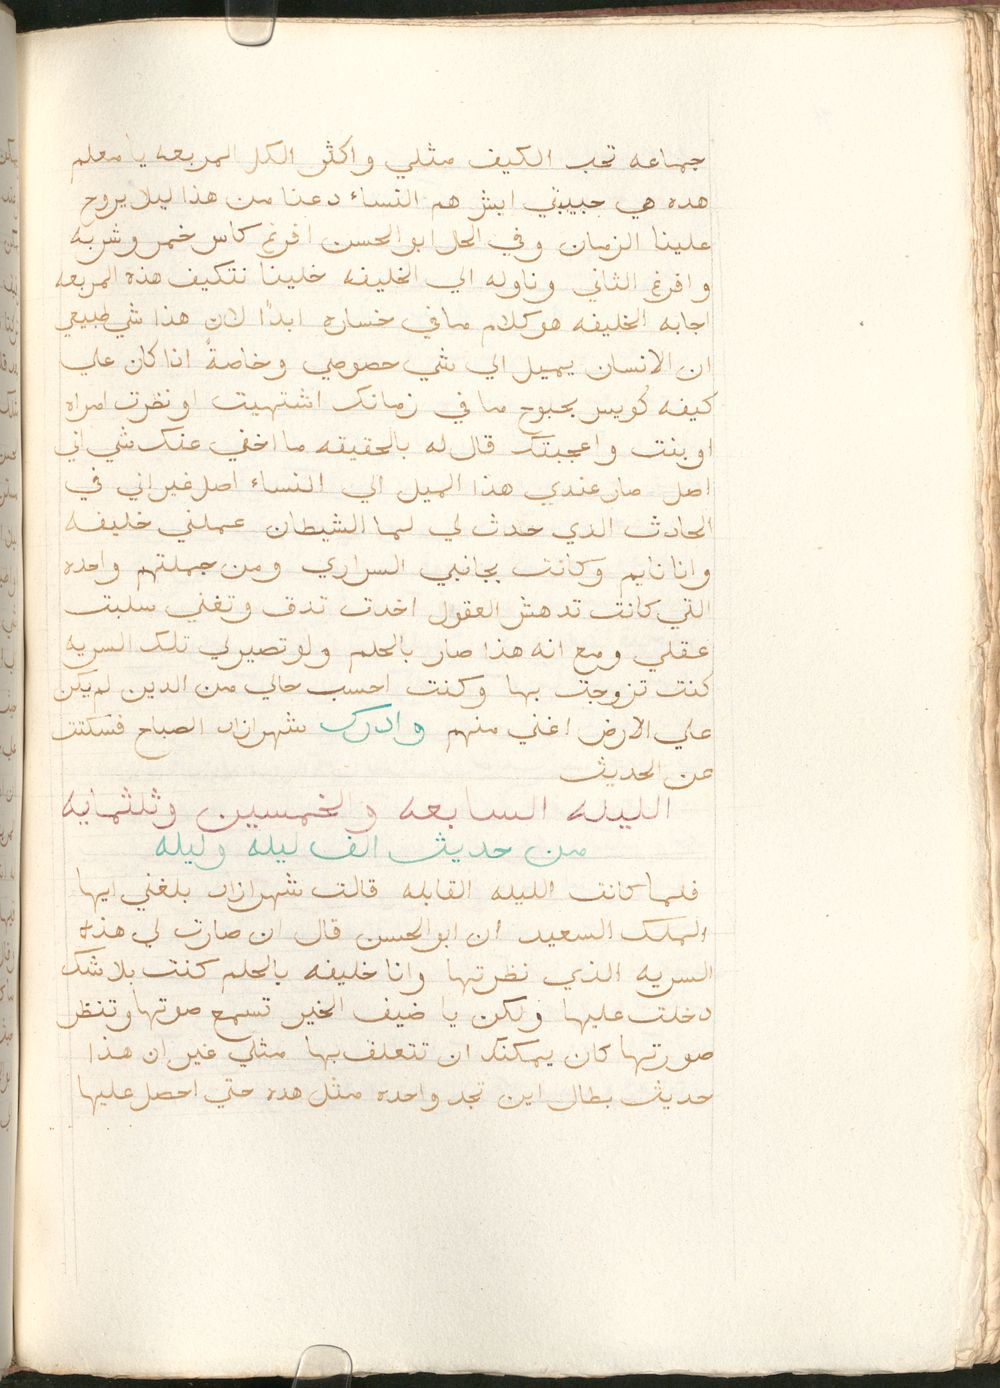 جماعه تحب الكيف مثلي واكثر الكل المربعه يا معلم
هده هي حبيبتي ايش هم النساء دعنا من هذا ليلا يروح
علينا الزمان وفي الحل ابو الحسن افرغ كاس خمر وشربه
وافرغ الثاني وناوله الي الخليفه خلينا نتكيف هذه المربعه
اجابه الخليفه هو كلام مافي خساره ابدًا لان هذا شي طبيعي
ان الانسان يميل الي شي خصوصي وخاصةً اذا كان علي
كيفه كُويس بحبوح ما في زمانك اشتهيت او نظرت امراه
او بنت واعجبتك قال له بالحقيقه ما اخفي عنك شي اني
اصل صار عندي هذا الميل الي النساء اصل غير اني في
الحادث الدي حدث لي لما الشيطان عملني خليفه
وانا نايم وكانت بجانبي السراري ومن جملتهم واحده
التي كانت تدهش العقول اخدت تدق وتغني سلبت
عقلي ومع انه هذا صار بالحلم ولو تصير لي تلك السريه
كنت تزوجت بها وكنت احسب حالي من الدين لم يكن
علي الارض اغني منهم وادرك شهرازاد الصباح فسكتت
عن الحديث
الليله السابعه والخمسين وثلثمايه
من حديث الف ليله وليله
فلما كانت الليله القابله قالت شهرازاد بلغني ايها
الملك السعيد ان ابو الحسن قال ان صارت لي هذه
السريه الذي نظرتها وانا خليفه بالحلم كنت بلا شك
دخلت عليها ولكن يا ضيف الخير تسمع صوتها وتنظر
صورتها كان يمكنك ان تتعلف بها مثلي غير ان هذا
حديث بطال اين تجد واحده مثل هده حتي احصل عليها